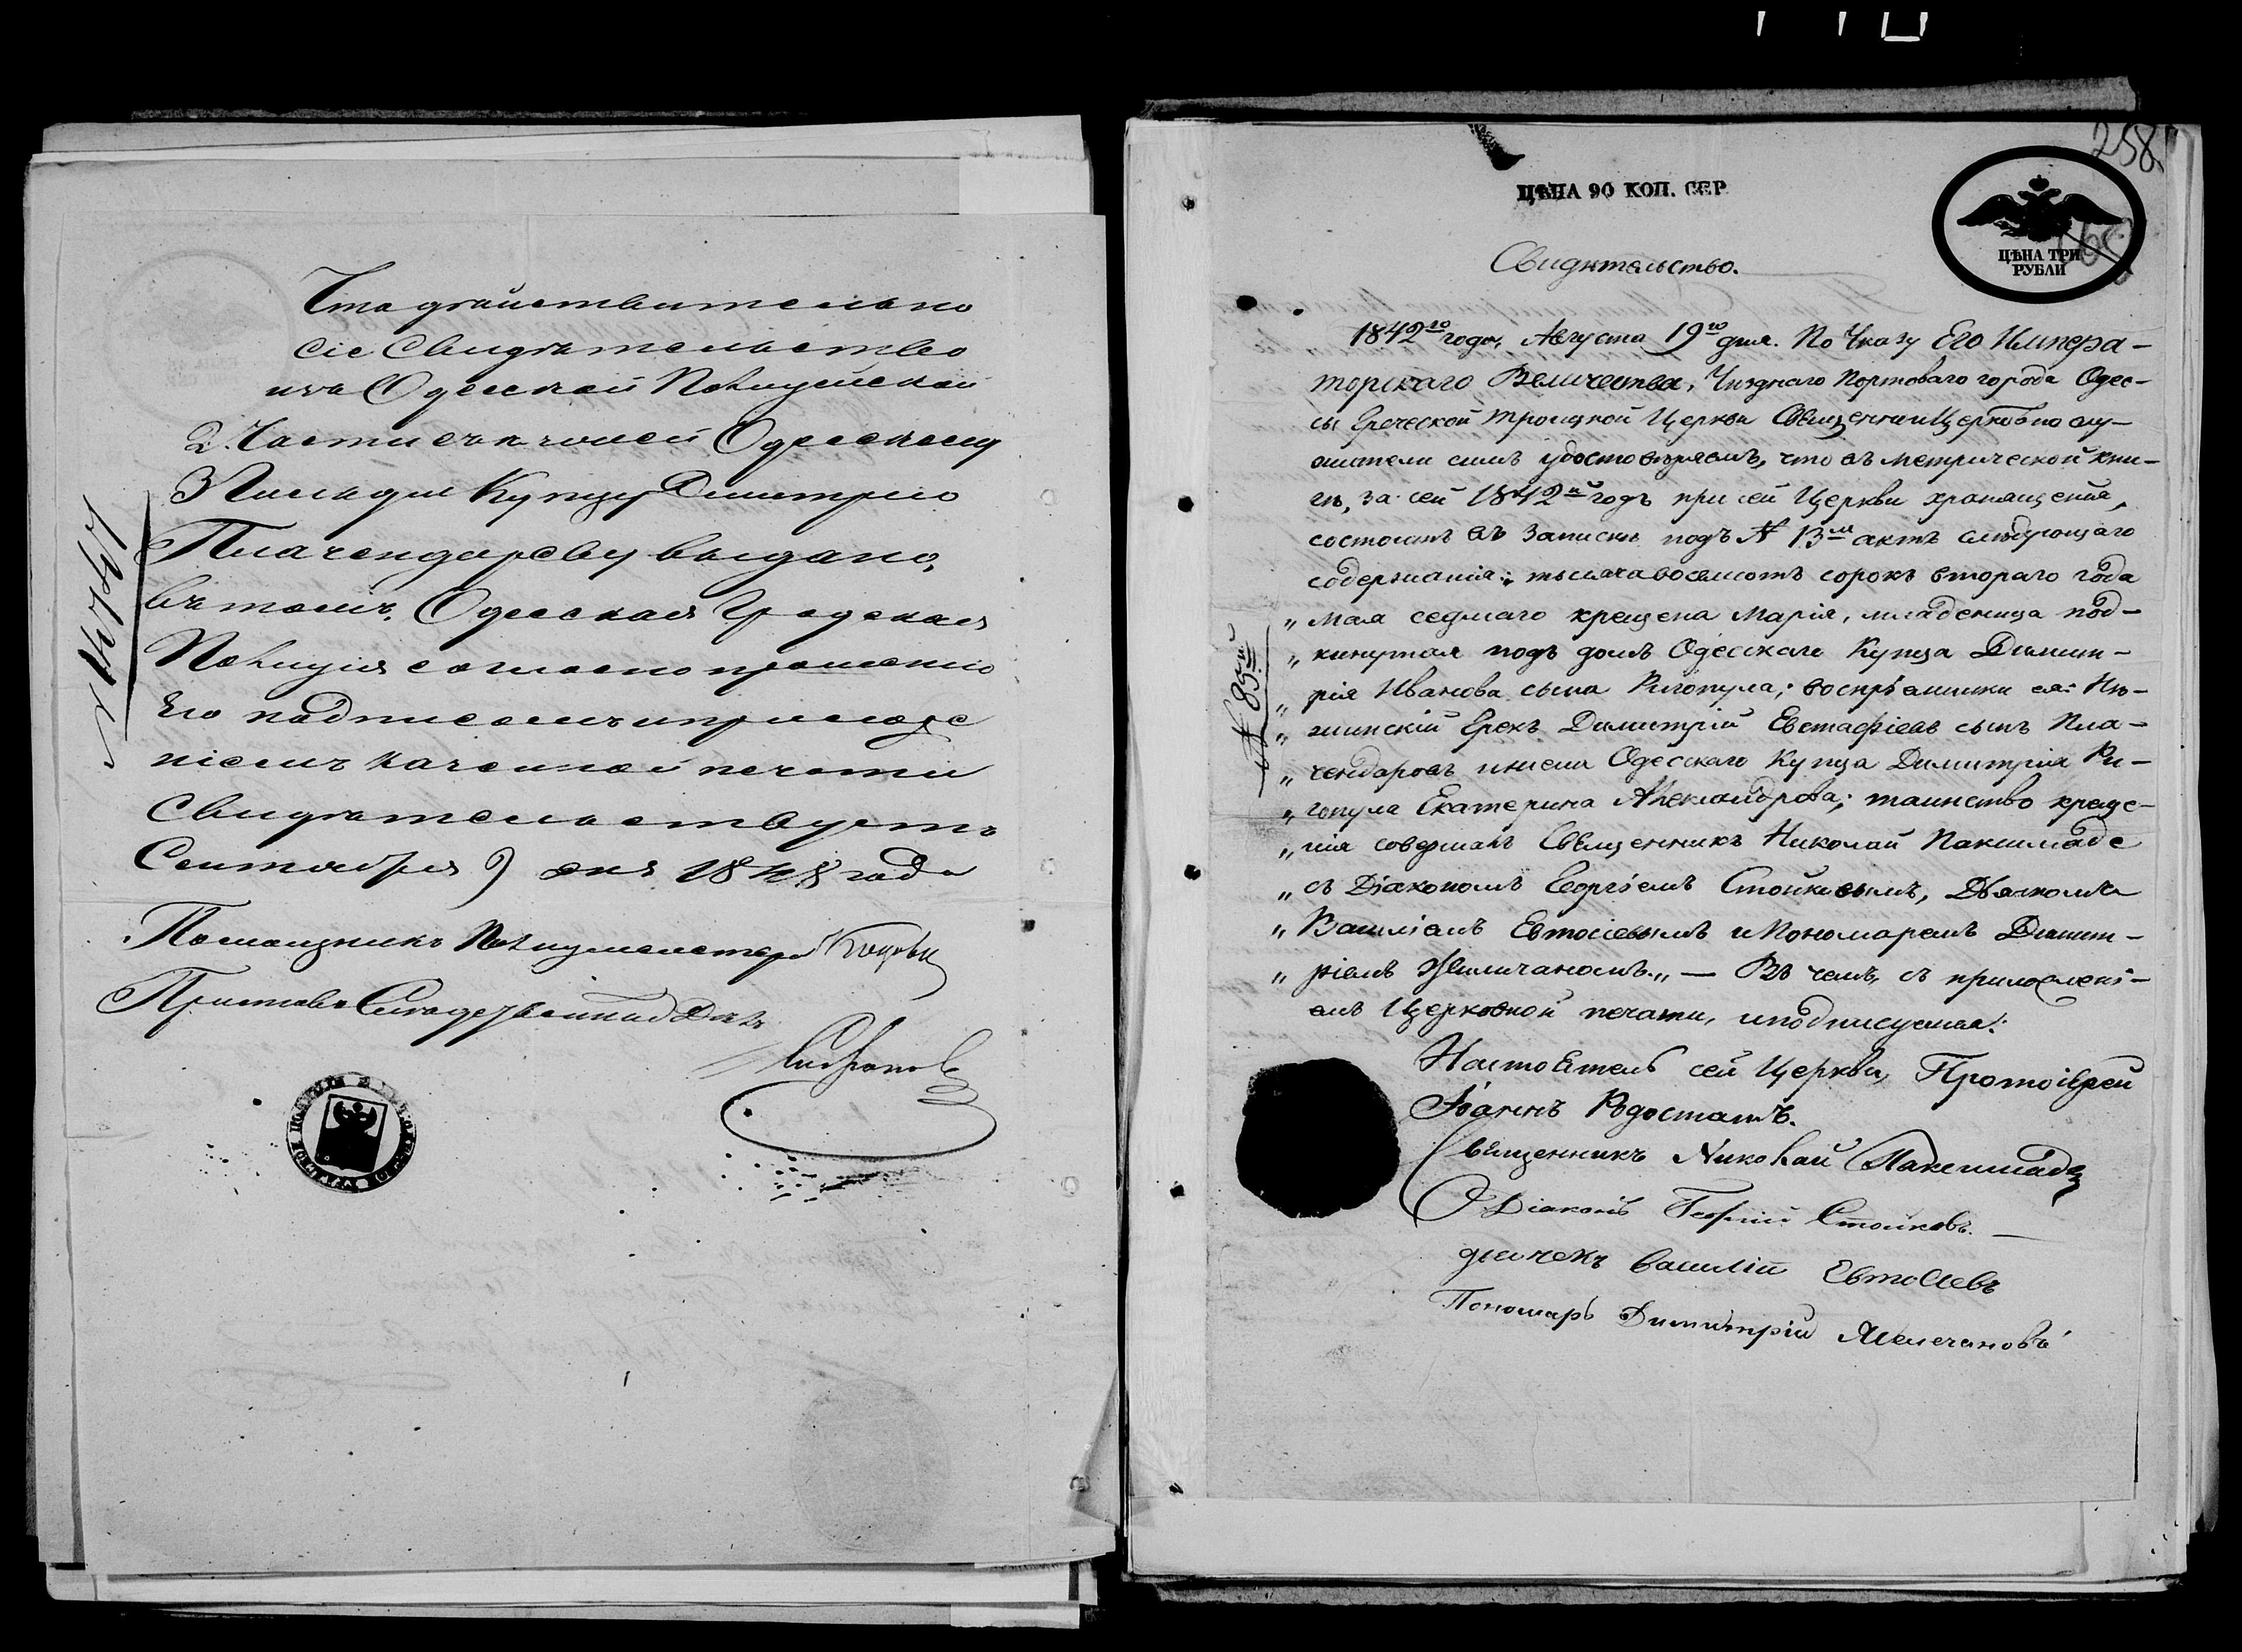 Что действительно
сіе Свидѣтельство
изъ Одесской Полицейской
2. Части съѣзжей Одесскому
3 Гильдіи Купцу Димитрію
Плачендареву выдано,
въ томъ, Одесская Градская
Полиція согласно прошенію
Его подписомъ и приложе
ніемъ казенной печати
Свидѣтельствуетъ
Сентября 9 дня 1848 года
Помощникъ Полицмейстера
Приставъ Слѣдственныхъ Дѣлъ
ЦѢНА 90 КОП. СЕР
258
ЦѢНА ТРИ
РУБЛИ
Свидѣтельство.
1842го года, Августа 19го дня. По Указу Его Импера-
торскаго Величества, Уѣзднаго Портоваго города Одес-
сы Греческой Троицкой Церкви Священнои Церковно слу-
жители симъ удостовѣряемъ, что въ метрической кни-
гѣ, за сей 1842й годъ при сей Церкви хранящейся,
состоитъ въ запискѣ подъ № 13м актъ слѣдующаго
содержанія: „тысяча восемсотъ сорокъ втораго года
„ мая седмаго крещена Марія, младеница под-
„ кинутая подъ домъ Одесскаго Купца Димит-
„ рія Иванова сына Ригопула; воспріемники ея: Нѣ-
„ жинскій Грекъ Димитрій Евстафіевъ сынъ Пла-
„ чендаровъ и жена Одесскаго Купца Димитрія Ри-
„ гопула Екатерина Александрова; таинство креще-
„ нія совершалъ Священникъ Николай Паксимаде
„ съ Діакономъ Георгіемъ Стойковымъ, Дьячкомъ
„ Василіемъ Евтосіевымъ и Пономаремъ Димит-
„ ріемъ Желичаномъ.„ — Въ чемъ, съ приложені-
емъ Церковной печати, и подписуемся:
№ 85й
Настоятель сей Церкви, Протоіерей
Іоаннъ Родостатъ.
Священникъ Николай Паксимади
Діаконъ Георгій Стойковъ. —
дьячекъ Василій Евтосіевъ
Пономарь Димитрій